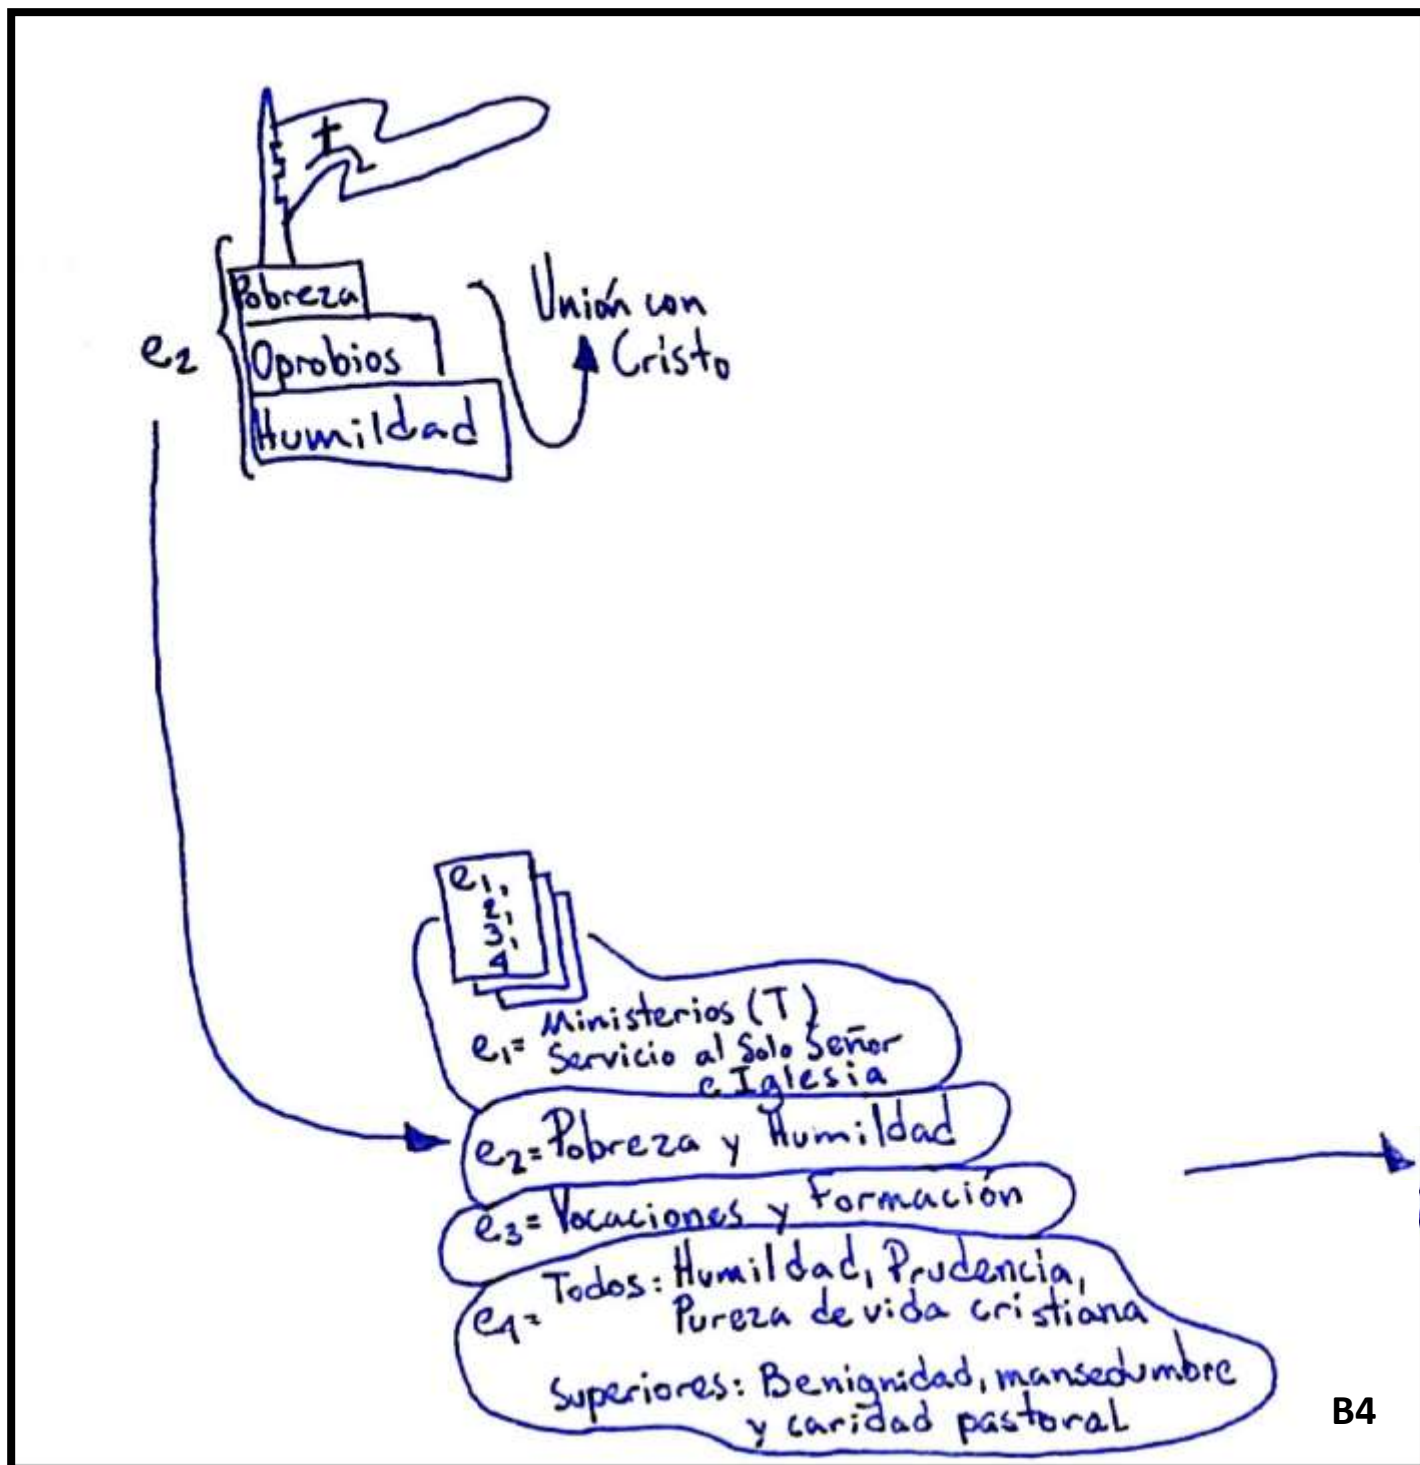 Pobreza
Oprobios
Humildad
e2
Unión con
Cristo
e1,
2,
3,
4
e1= Ministerios (T)
Servicio al Solo Señor
e Iglesia
e2= Pobreza y Humildad
e3= Vocaciones y Formación
e4= Todos: Humildad, Prudencia,
Pureza de vida cristiana
Superiores: Benignidad, mansedumbre
y caridad pastoral
B4